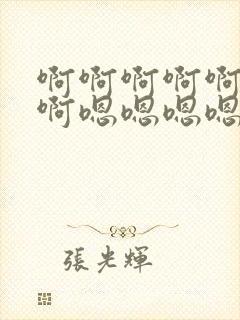 啊啊啊啊啊
啊嗯嗯嗯嗯
張光輝